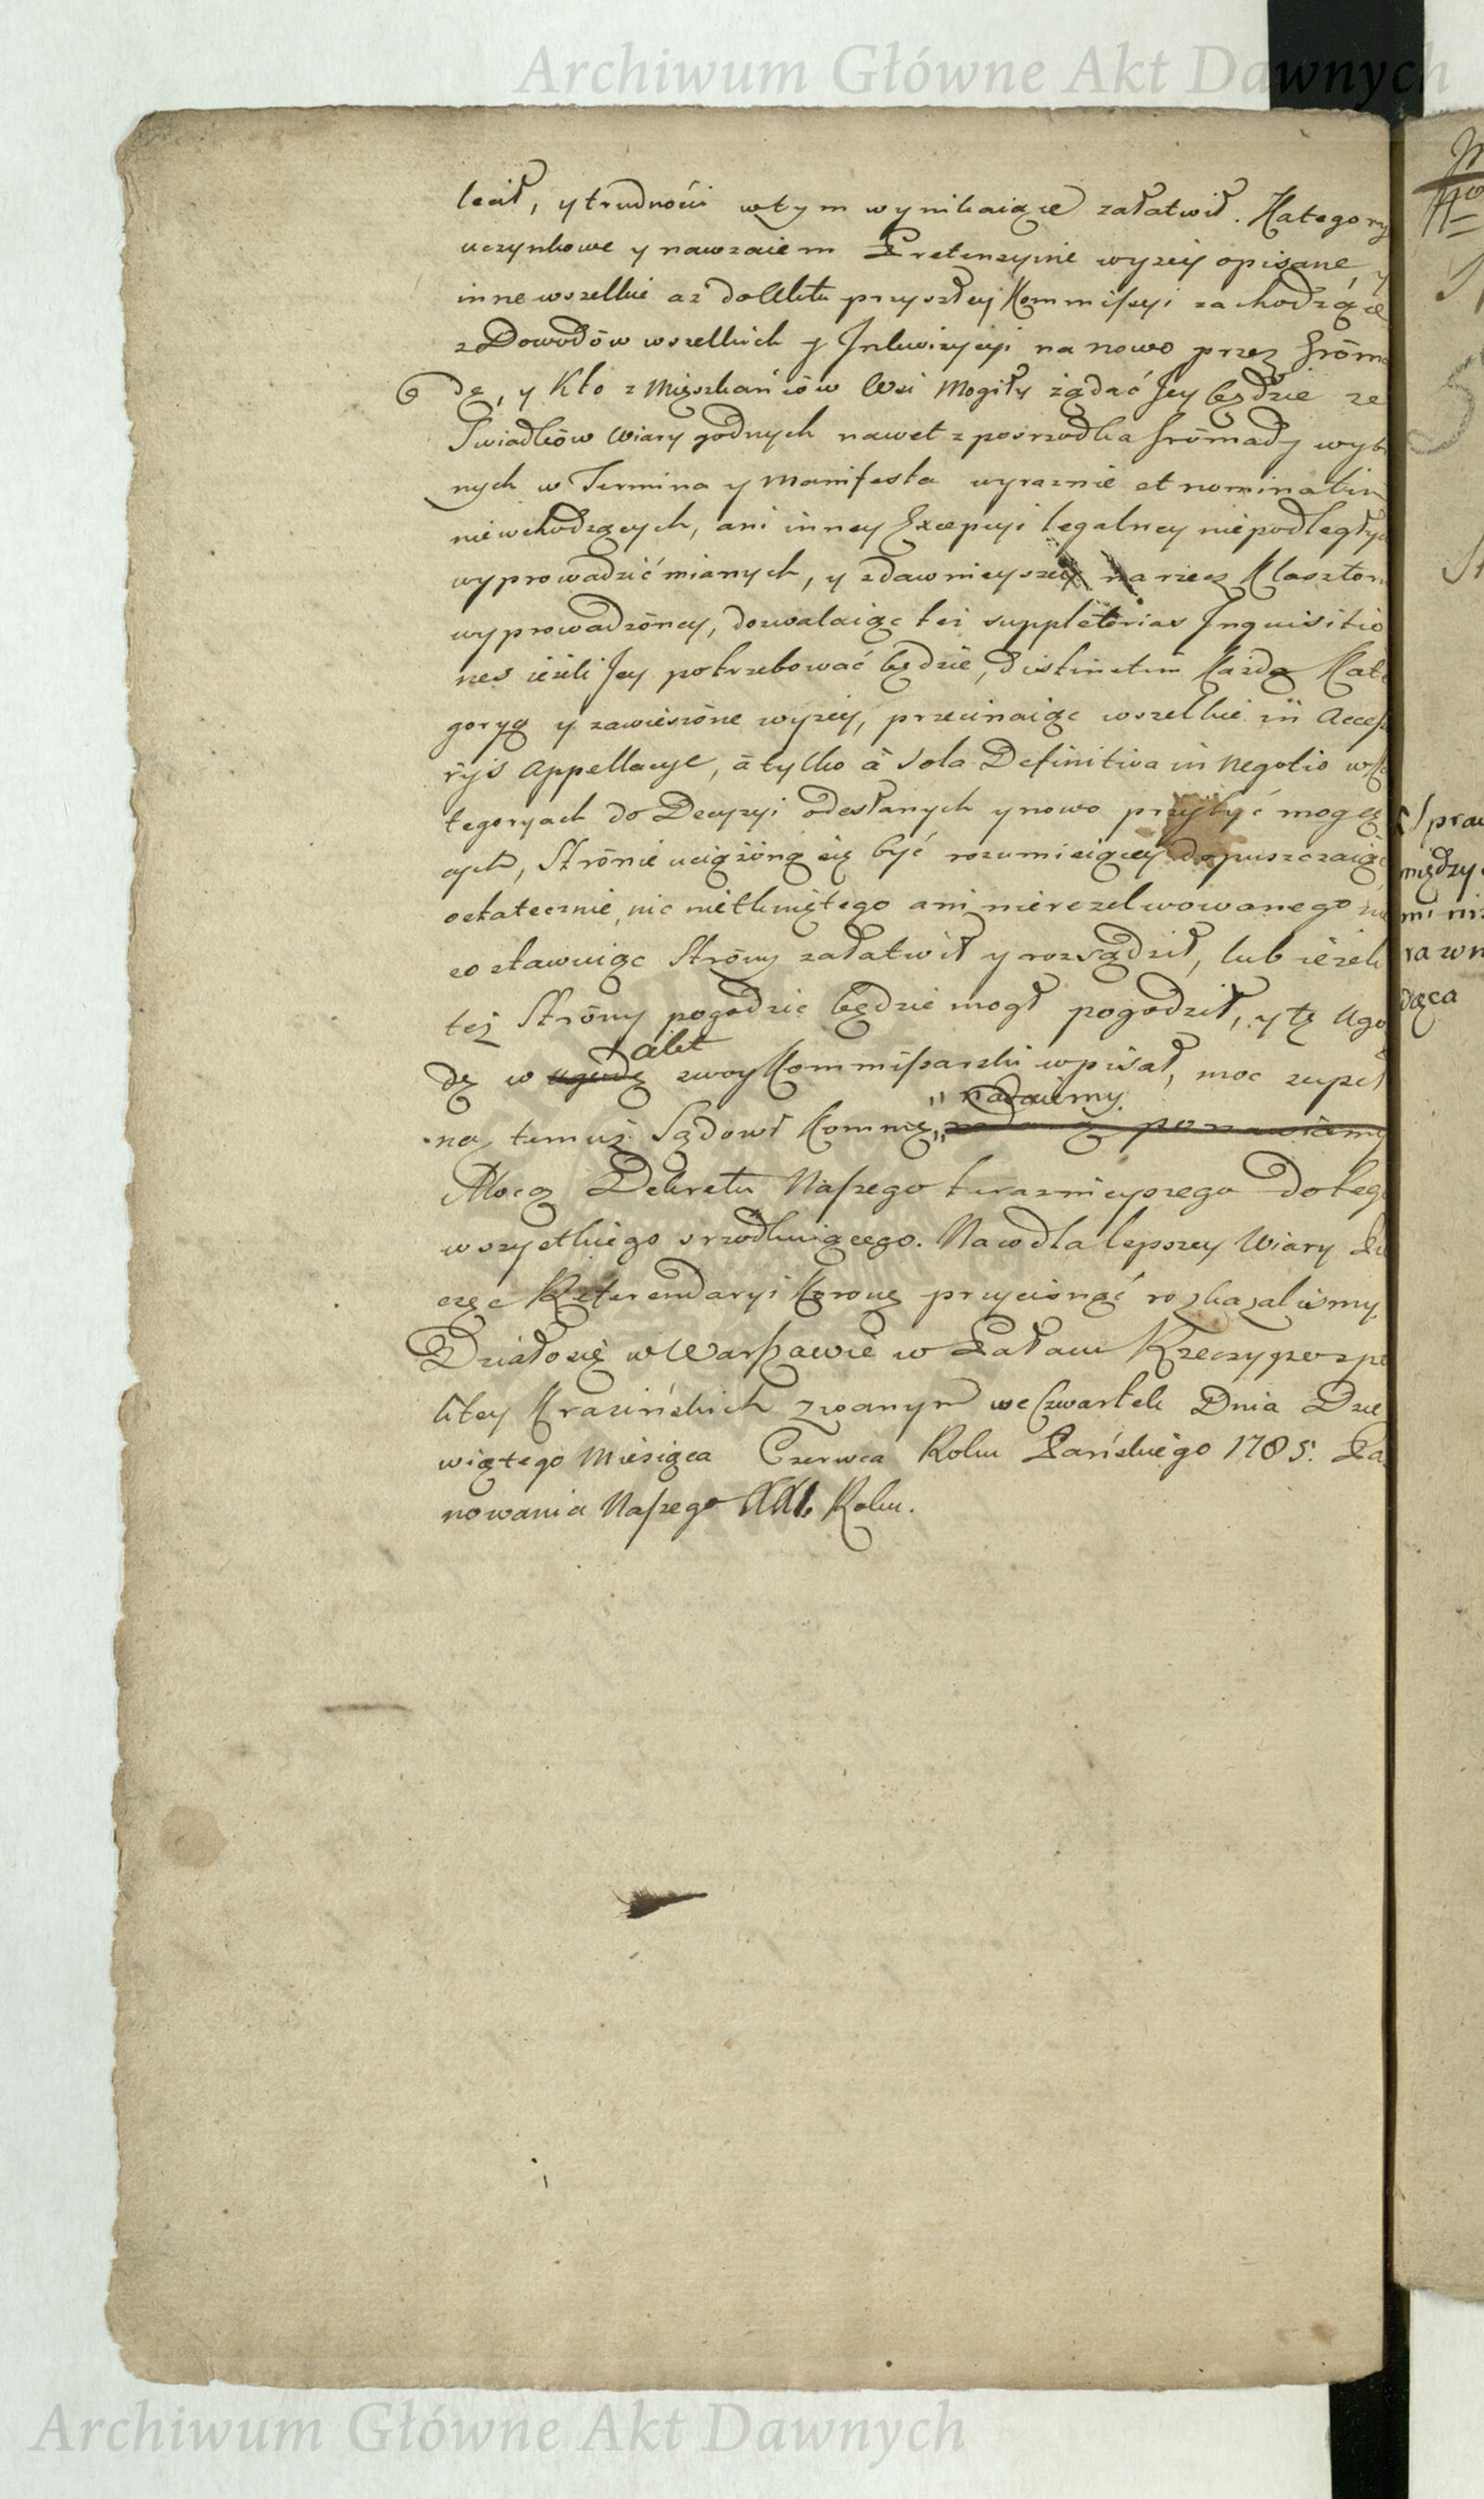 Archiwum Główne Akt Dawnych
lecił, y trudności wtym wynikaiące załatwił. Kategory
uczynkowe y nawzaiem Pretensyine wyżey opisane, y
inne wszelkie aż do Aktu przyszłey Kommissyi zachodzące
z Dowodów wszelkich y Inkwizycyi na nowo przez Gróma
dę, y Kto z Mięszkańców Wsi Mogiły żądać Jey będzie ze
Swiadków Wiary godnych nawet z posrzodka Grómady wybr
nych w Termina y Manifesta wyraznie et nominatim
niewchodzących, ani inney Excepcyi legalney niepodległyc
wyprowadzić mianych, y zdawnieyszey na rzecz Klasztoru
wyprowadzóney, dozwalaiąc też suppletorias Inquisitio
nes ieżeli Jey potrzebować będzie, distinctim Każdą Kate
goryą y zawieszóne wyżey, przecinaiąc wszelkie in Accesso
rijs Appellacye, á tylko á sola Definitiva in Negotio w Ka
tegoryach do Decyzyi odesłanych y nowo przybyć mogą
cych, Strónie uciążóną się być rozumieiącey dopuszczaiąc
ostatecznie, nic nietkniętego ani nierezolwowanego nie
zostawuiąc Stróny załatwił y rozsądził, lub ieżeli
też Stróny pogodzić będzie mogł pogodził, y tę Ugo
akt
dę w ugodę swoy Kommissarski wpisał, moc zupeł
nadaiemy
ną temuż Sądowi Kommię ponawiamy
Mocą Dekretu Naszego teraznieyszego do tego
wszystkiego srzodkuiącego. Na co dla lepszey Wiary Pie
częc Refferendaryi Koronę przycisnąć rozkazalismy.
Działo się w Warszawie w Pałacu Rzeczypospo
litey Krasińskich zwanym we Czwartek Dnia Dzie
wiątego Miesiąca Czerwca Roku Pańskiego 1785. Pa
nowania Naszego XXI. Roku.
Spraw
między
mi ni
ra wn
dąca
Archiwum Główne Akt Dawnych